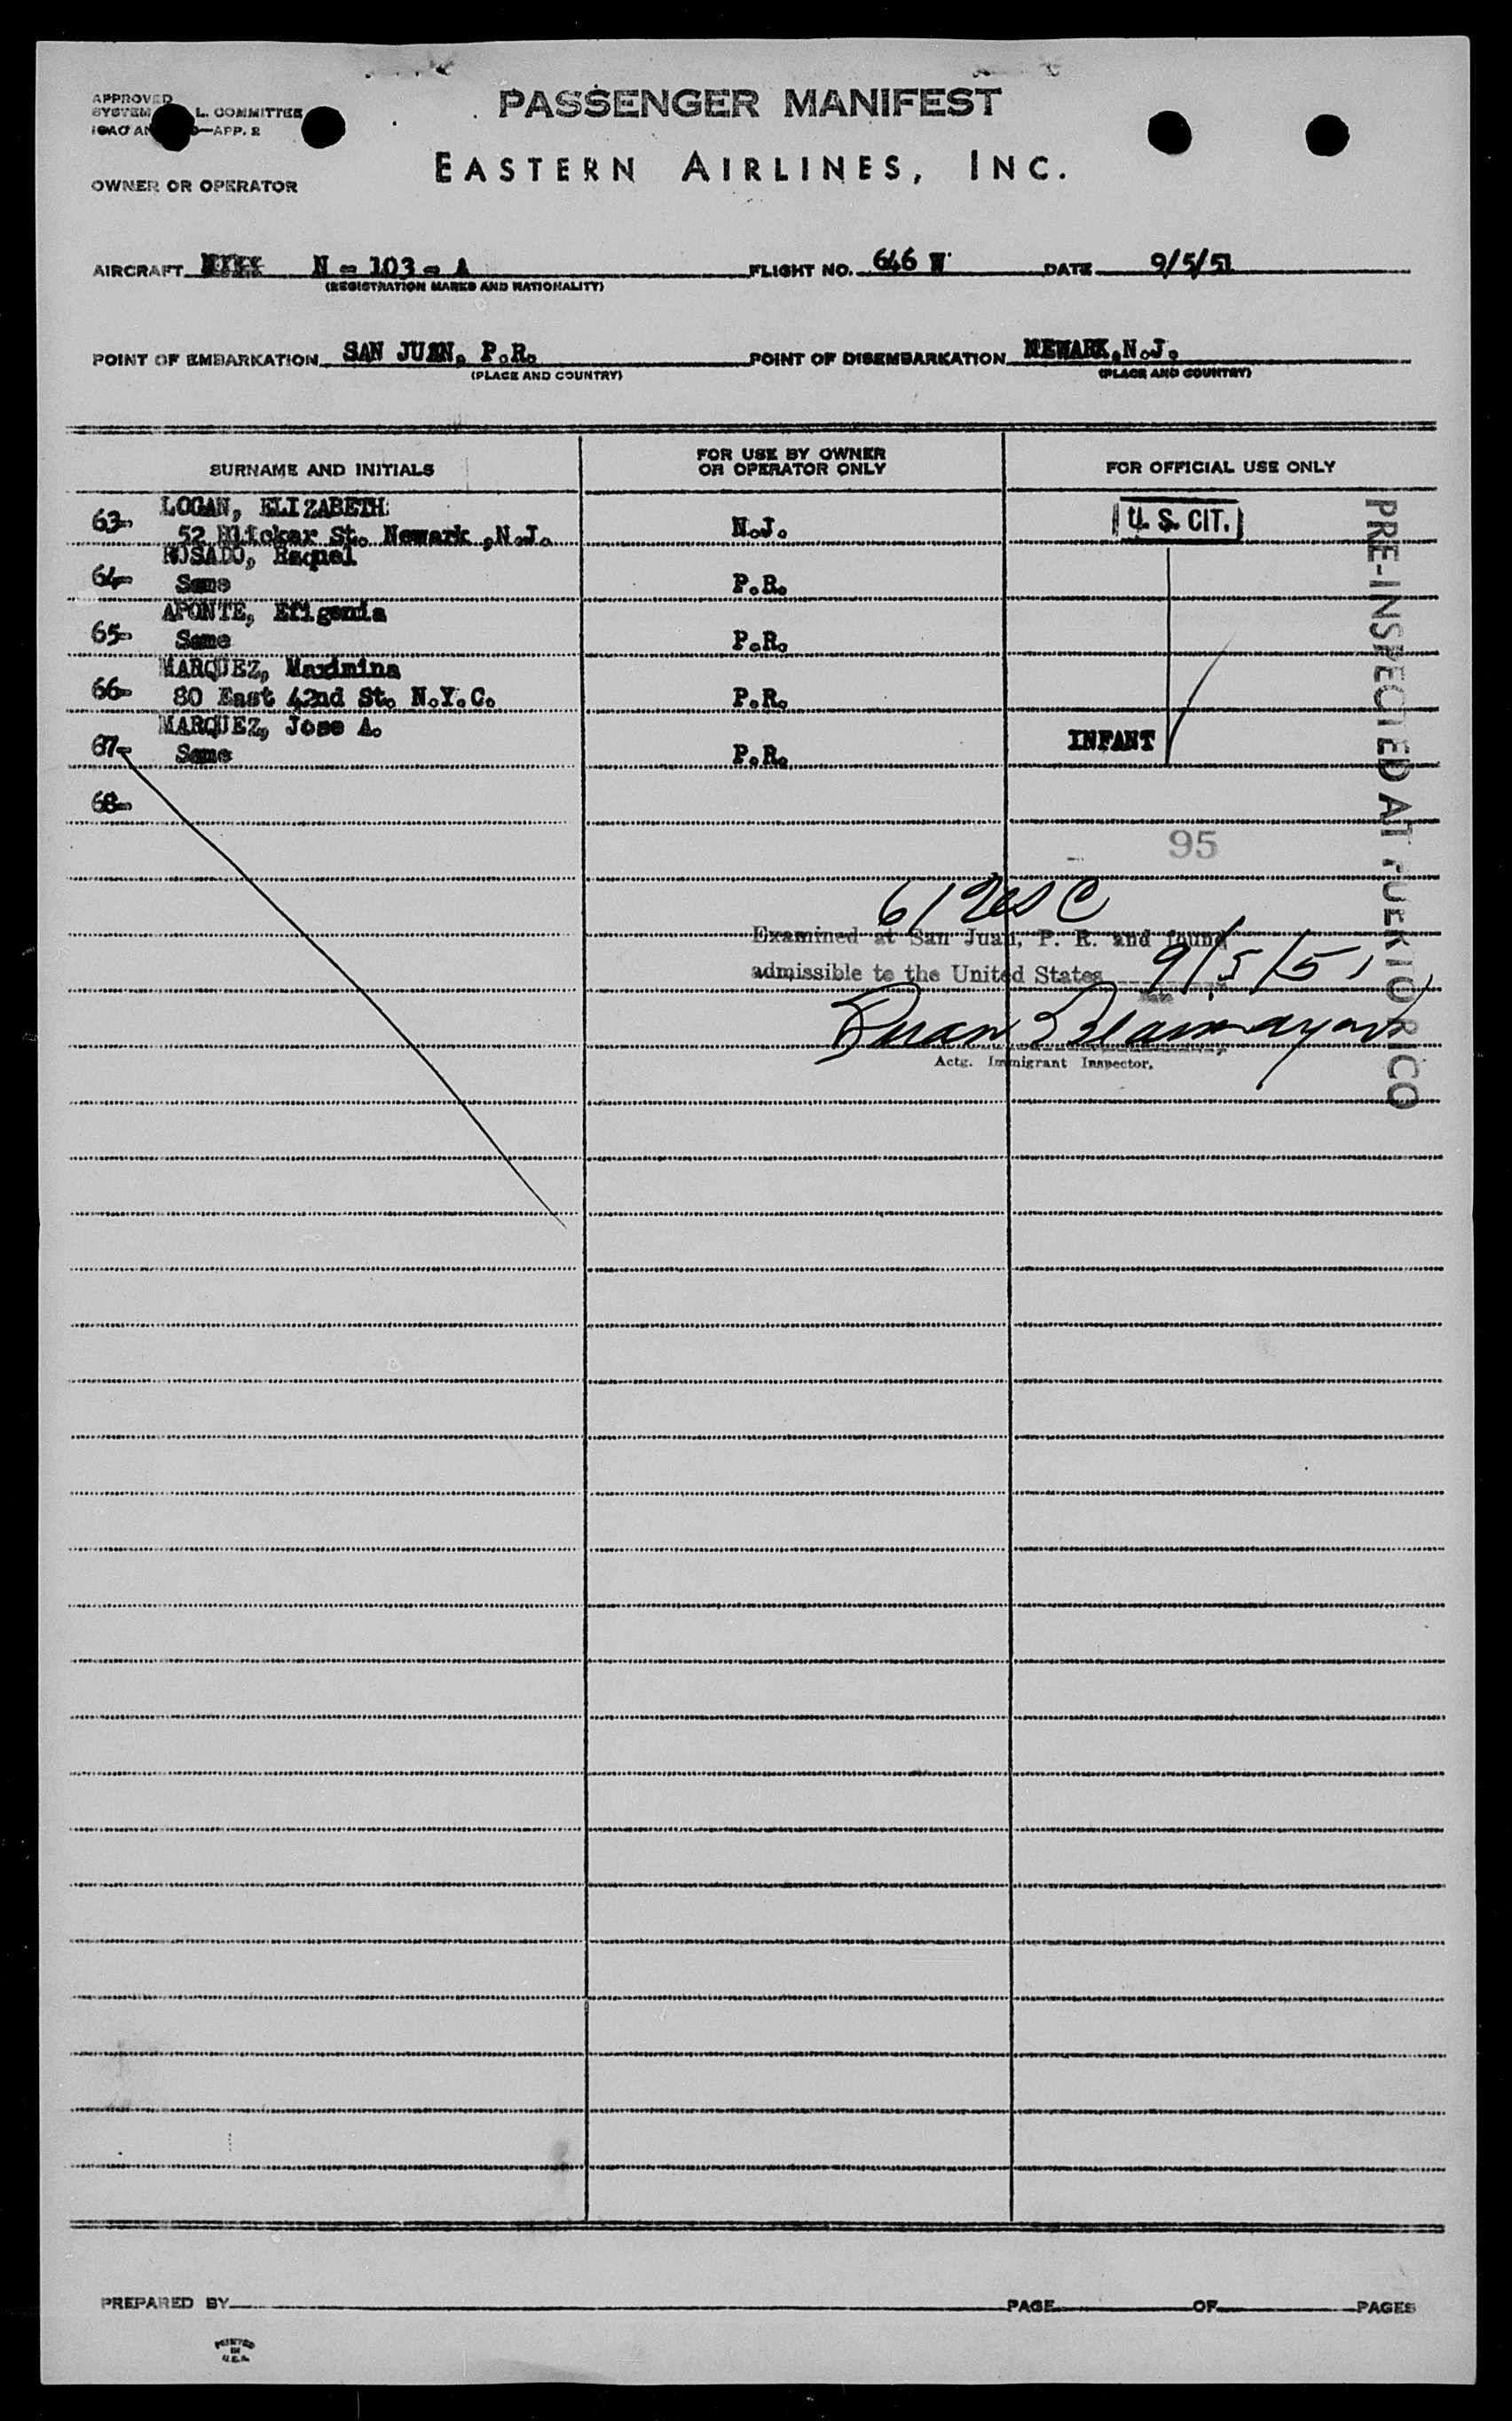 APPROVED
SYSTEM L. COMMITTEE
ICAO AN —APP. 2
PASSENGER MANIFEST
OWNER OR OPERATOR
EASTERN AIRLINES, INC.
AIRCRAFT N - 103 - A FLIGHT NO. 646 DATE 9/5/51
(REGISTRATION MARKS AND NATIONALITY)
POINT OF EMBARKATION SAN JUAN, P.R. POINT OF DISEMBARKATION NEWARK, N.J.
(PLACE AND COUNTRY) (PLACE AND COUNTRY)
SURNAME AND INITIALS FOR USE BY OWNER OR OPERATOR ONLY FOR OFFICIAL USE ONLY
LOGAN, ELIZABETH
63- 52 St. Newark ,N.J. N.J. U. S. CIT.
ROSADO, Raquel
64- Same P.R.
APONTE, Efigenia
65- Same P.R.
MARQUEZ, Maximina
66- 80 East 42nd St. N.Y.C. P.R.
MARQUEZ, Jose A.
67- Same P.R. INFANT
68-
95
PRE-INSPECTED AT PUERTO RICO
Examined at San Juan, P. R. and found
admissible to the United States 9/5/51
Date
Actg. Immigrant Inspector.
PREPARED BY PAGE OF PAGES
PRINTED
IN
U.S.A.